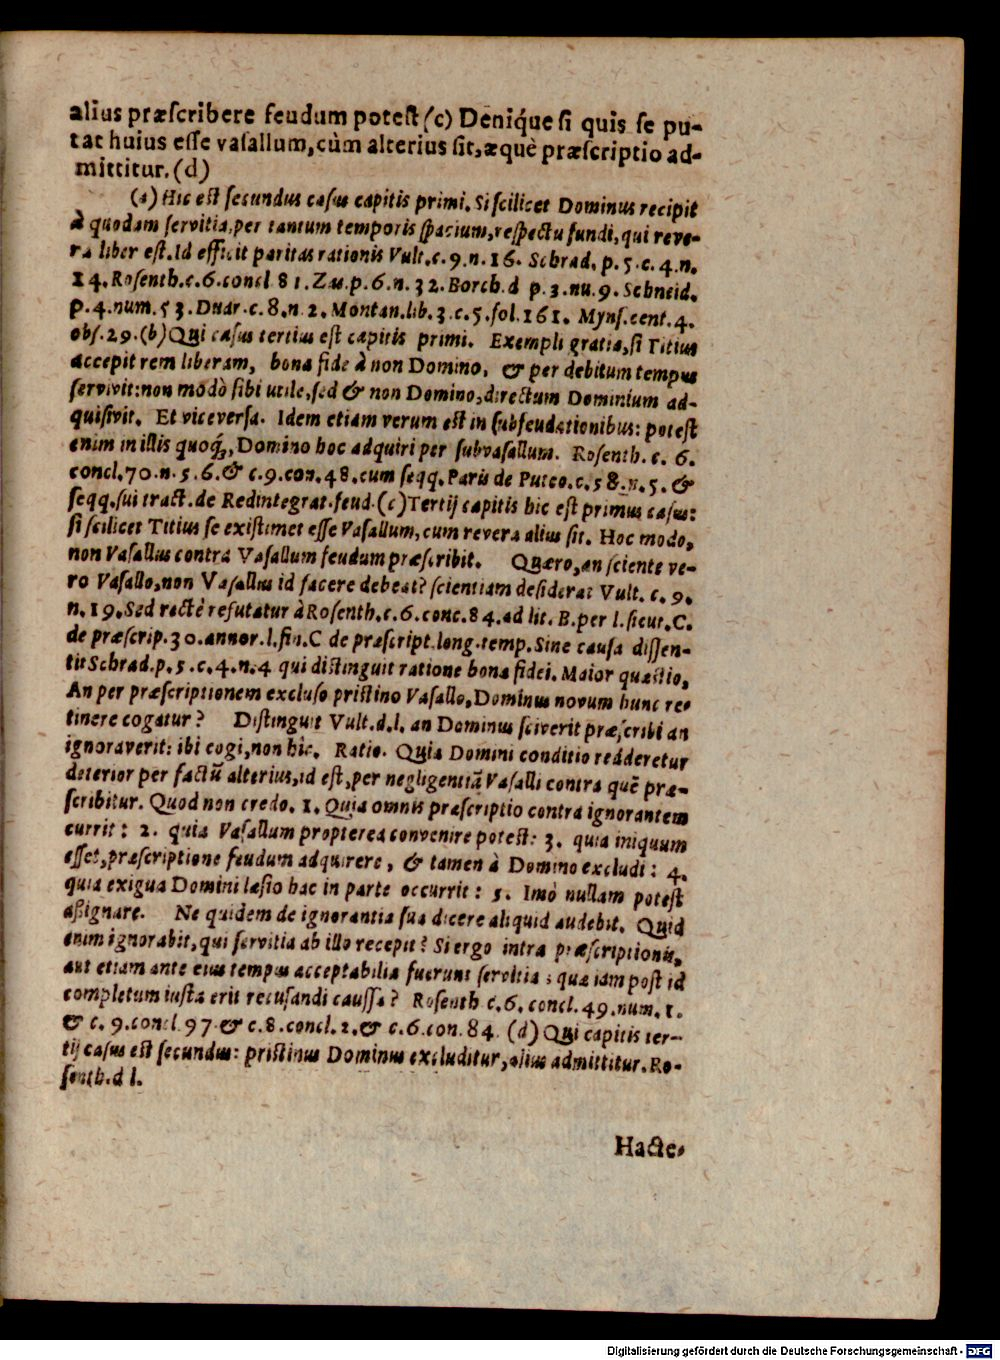 alius præſcribere feudum poteſt (c) Deniq́ue ſi quis ſe pu-
tat huius eſſe vaſallum, cùm alterius ſit, æquè præſcriptio ad-
mittitur. (d)
(a) Hic eſt ſecundus caſus capitis primi. Si ſcilicet Dominus recipit
à quodam ſervitia, per tantum temporis ſpacium, reſpectu fundi, qui reve-
ra liber eſt. Id efficit paritas rationis Vult. c. 9. n. 16. Schrad. p. 5. c. 4. n.
14. Roſenth. c. 6. concl 81. Zas. p. 6. n. 32. Borch. d p. 3. nu. 9. Schneid.
p. 4. num. 53. Duar. c. 8. n. 2. Montan. lib. 3. c. 5. fol. 161. Mynſ. cent. 4.
obſ. 29. (b) Qui caſus tertius eſt capitis primi. Exempli gratia, ſi Titius
accepit rem liberam, bona fide à non Domino, & per debitum tempus
ſervivit: non modò ſibi utile, ſed & non Domino, directum Dominium ad-
quiſivit. Et viceverſa. Idem etiam verum eſt in ſubfeudationibus: poteſt
enim in illis quoq́;, Domino hoc adquiri per ſubvaſallum. Roſenth. c. 6.
concl. 70. n. 5. 6. & c. 9. con. 48. cum ſeqq. Paris de Puteo. c. 58. n. 5. &
ſeqq. ſui tract. de Redintegrat. feud. (c) Tertij capitis hic eſt primus caſus:
ſi ſcilicet Titius ſe exiſtimet eſſe Vaſallum, cum revera alius ſit. Hoc modo,
non Vaſallus contra Vaſallum feudum præſcribit. Quæro, an ſciente ve-
ro Vaſallo, non Vaſallus id facere debeat? ſcientiam deſiderat Vult. c. 9.
n. 19. Sed rectè refutatur à Roſenth. c. 6. conc. 84. ad lit. B. per l. ſicut. C.
de præſcrip. 30. annor. l. fin. C de præſcript. long. temp. Sine cauſa diſſen-
tit Schrad. p. 5. c. 4. n. 4 qui diſtinguit ratione bonæ fidei. Maior quæſtio,
An per præſcriptionem excluſo priſtino Vaſallo, Dominus novum hunc re-
tinere cogatur? Diſtinguit Vult. d. l. an Dominus ſciverit præſcribi an
ignoraverit: ibi cogi, non hîc. Ratio. Quia Domini conditio redderetur
deterior per factũ alterius, id eſt, per negligentiã Vaſalli contra quẽ præ-
ſcribitur. Quod non credo. 1. Quia omnis præſcriptio contra ignorantem
currit: 2. quia Vaſallum propterea convenire poteſt: 3. quia iniquum
eſſet, præſcriptione feudum adquirere, & tamen à Domino excludi: 4.
quia exigua Domini læſio hac in parte occurrit: 5. Imò nullam poteſt
aſſignare. Ne quidem de ignorantia ſua dicere aliquid audebit. Quid
enim ignorabit, qui ſervitia ab illo recepit? Si ergo intra præſcriptionis,
aut etiam ante eius tempus acceptabilia fuerunt ſervitia; quæ iam poſt id
completum iuſta erit recuſandi cauſſa? Roſenth c. 6. concl. 49. num. 1.
& c. 9. concl. 97. & c. 8. concl. 2. & c. 6. con. 84. (d) Qui capitis ter-
tij caſus eſt ſecundus: priſtinus Dominus excluditur, alius admittitur. Ro-
ſenth. d l.
Hacte-
Digitalisierung gefördert durch die Deutsche Forschungsgemeinschaft - DFG